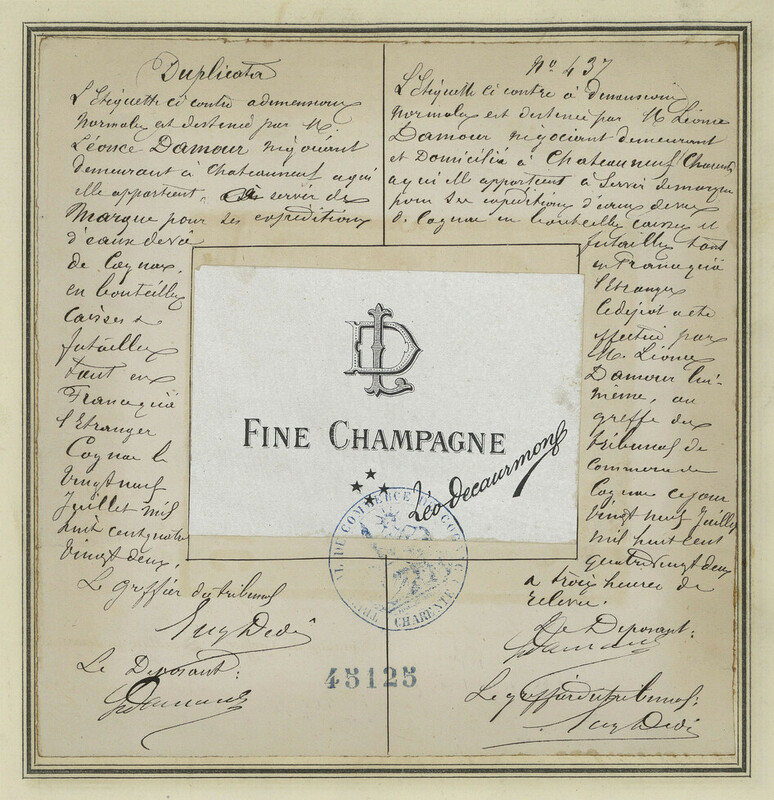 Duplicata
L'Etiquette ci contre a dimensions
normales est destinée par M.
Léonce Damour négociant
demeurant à Chateauneuf a qui
elle appartient, à servir de
Marque pour ses expéditions
d'eaux de vie
de Cognac,
en bouteilles
Caisses &
futailles
tant en
France qu'à
l'Etranger
Cognac le
vingt neuf
Juillet mil
huit cent quatre
vingt deux,
Le Greffier du tribunal
Le Deposant:
No 437
L'Etiquette ci contre à dimensions
normales est destinée par M Léonce
Damour négociant demeurant
et Domicilié à Chateauneuf Charente
a qui elle appartient a servir de marque
pour ses expeditions d'eaux de vie
de Cognac en bouteilles caisses et
futailles tant
en France qu'à
l'Etranger
Le dépot a été
effectué par
M. Léonce
Damour lui-
meme, au
greffe du
tribunal de
Commerce de
Cognac ce jour
vingt neuf Juillet
mil huit cent
quatre vingt deux
a trois heures de
relevée.
Le Deposant:
Le greffier du tribunal:
DL
FINE CHAMPAGNE
Léo Decaurmont
TRIBUNAL DE COMMERCE DE COGNAC
CHARENTE
45125